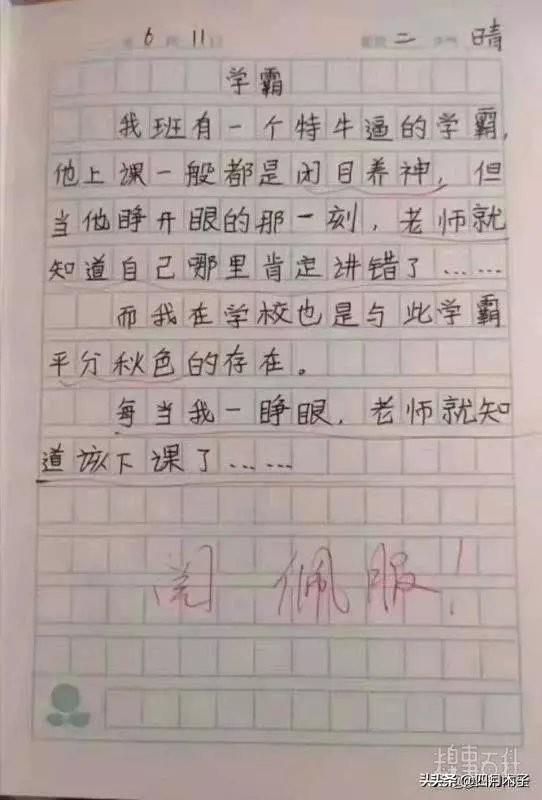 6 月 11日 星期 二 天气 晴
学霸
我班有一个特牛逼的学霸,
他上课一般都是闭目养神,但
当他睁开眼的那一刻,老师就
知道自己哪里肯定讲错了……
而我在学校也是与此学霸
平分秋色的存在。
每当我一睁眼,老师就知
道该下课了……
阅 佩服!
糗事百科
头条@四月木子